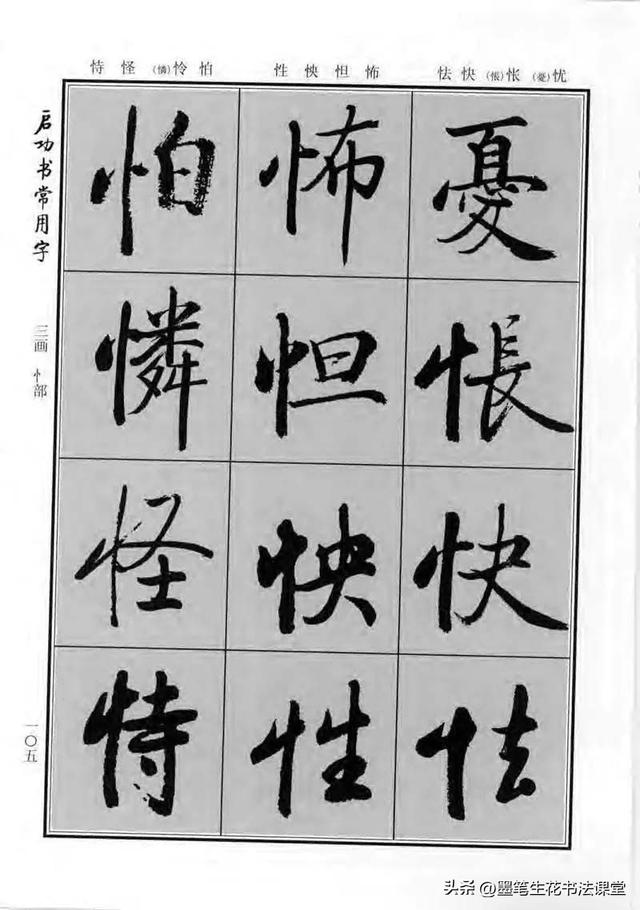 恃怪(憐)怜怕 性怏怛怖 怯快(悵)怅(憂)忧
启功书常用字
三画 忄部
一〇五
憂
悵
快
怯
怖
怛
怏
性
怕
憐
怪
恃
头条@墨笔生花书法课堂